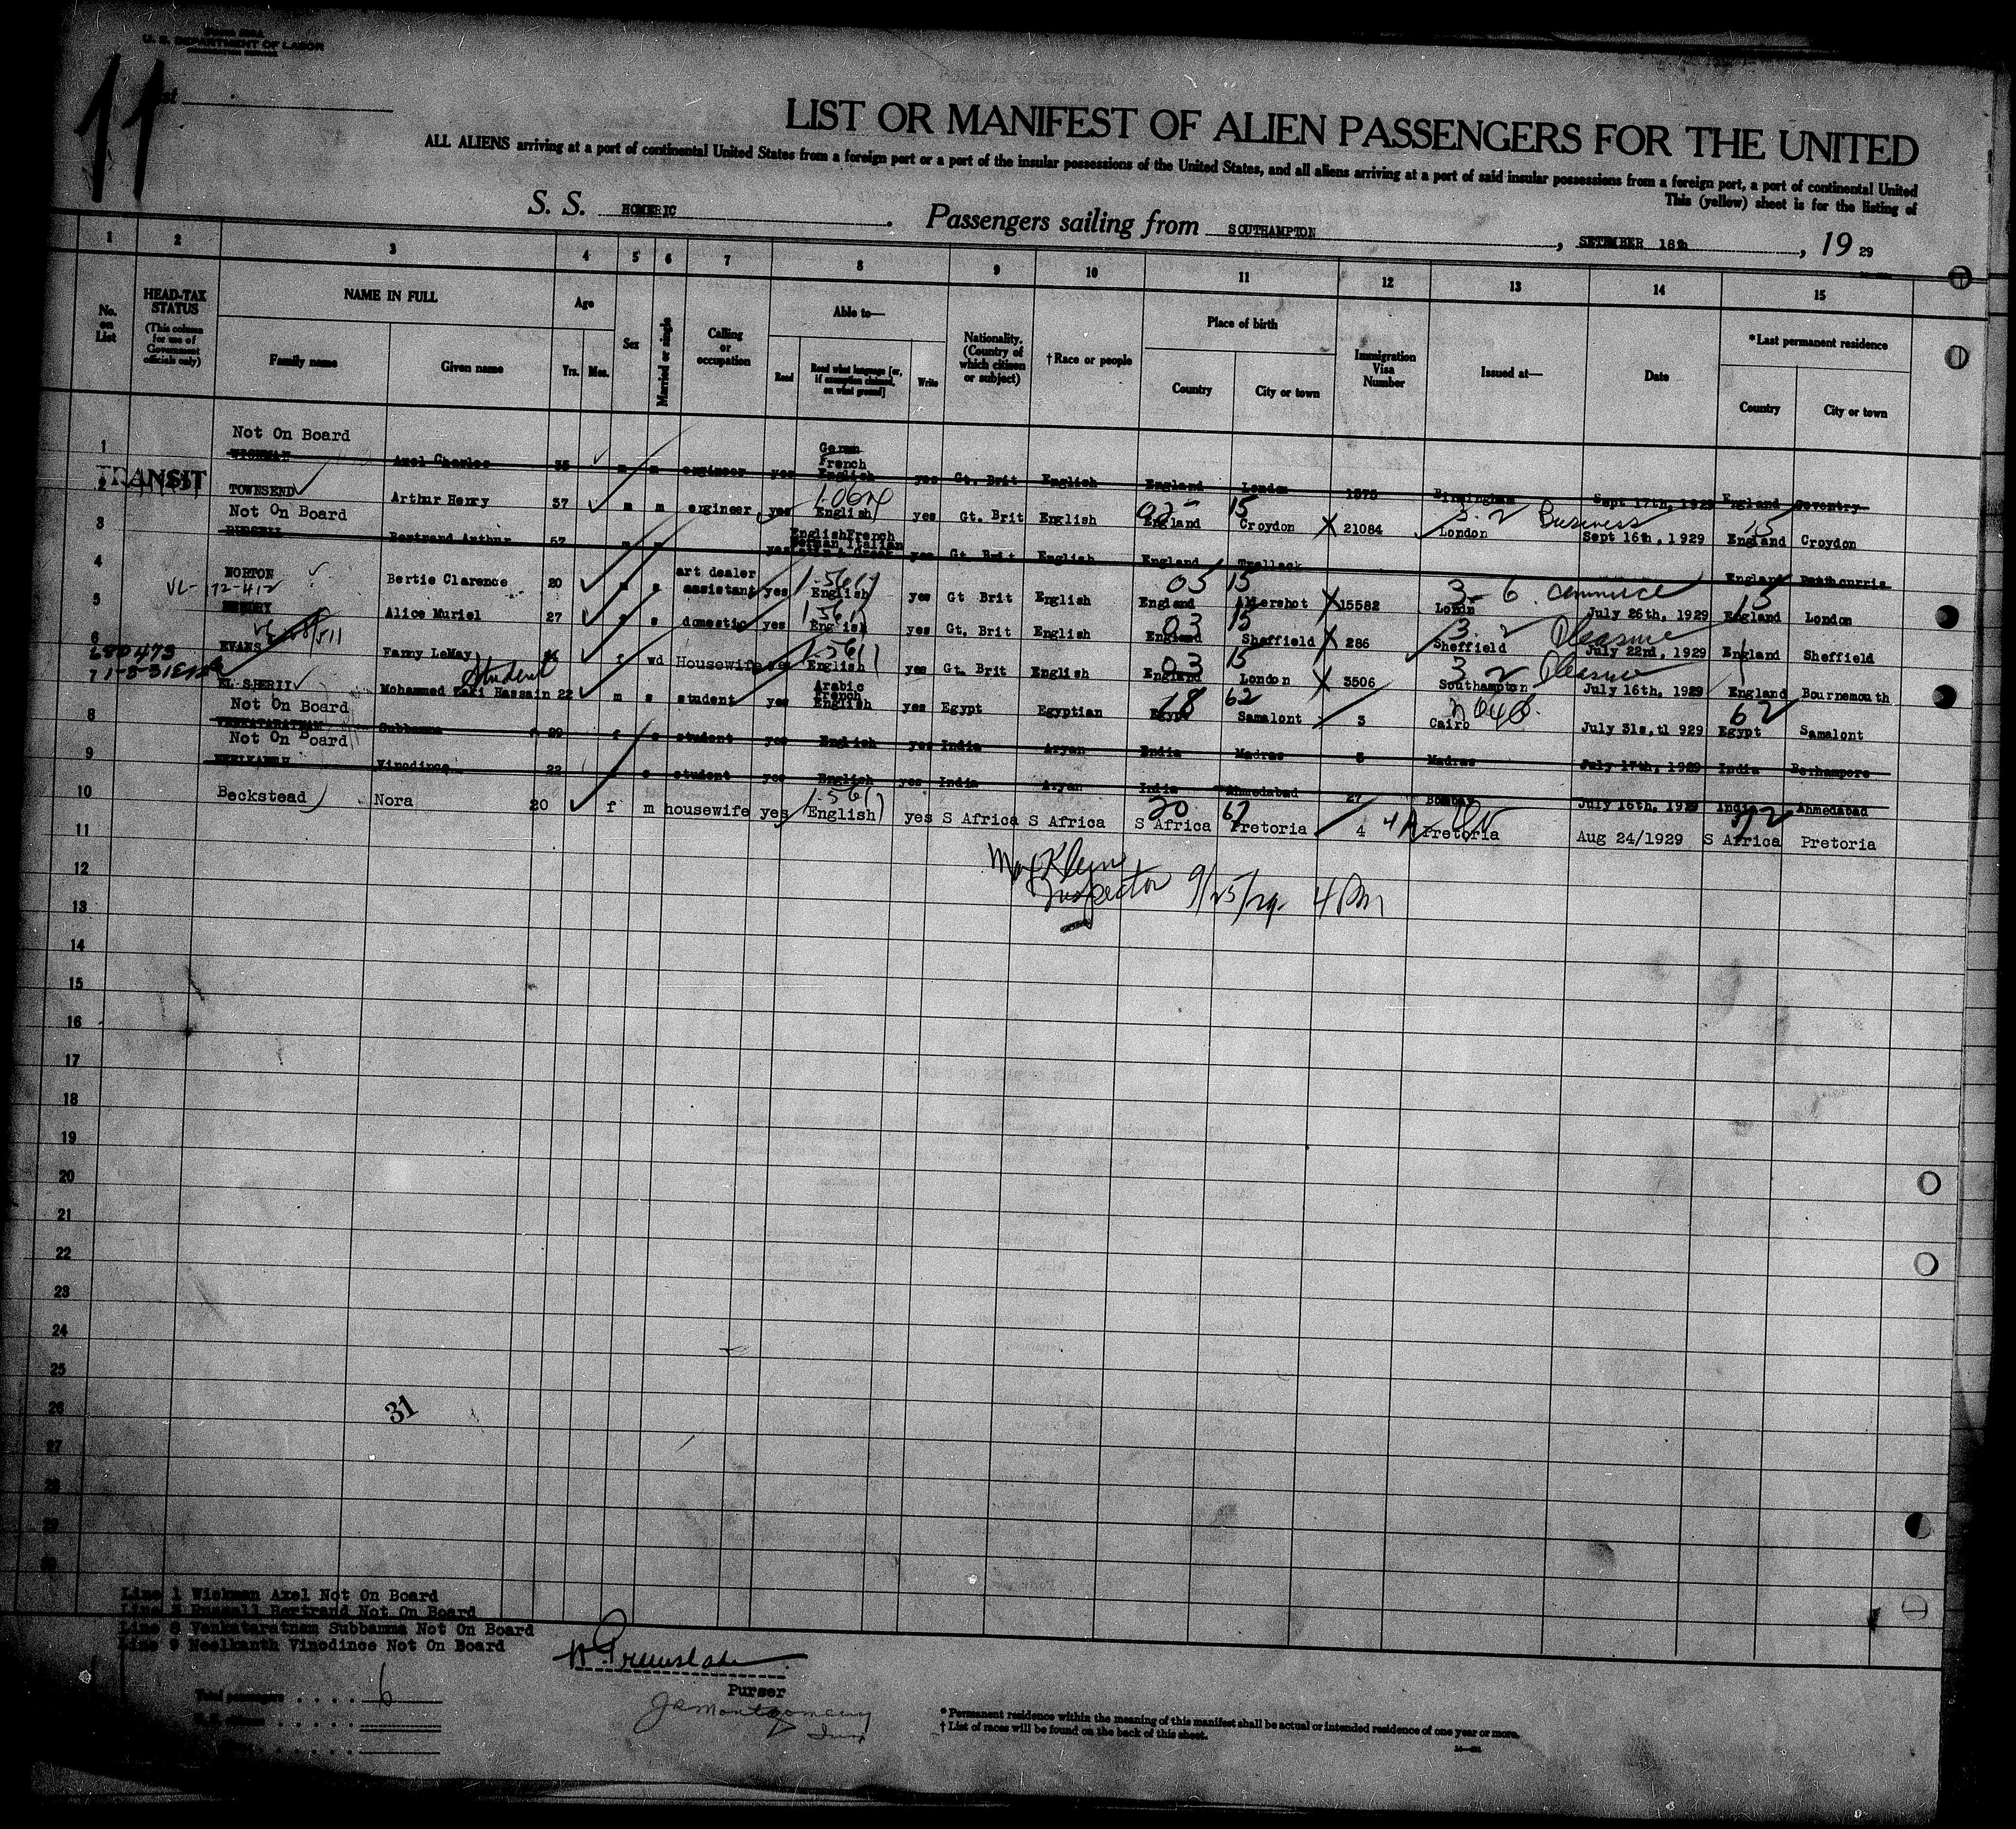 U. S. DEPARTMENT OF LABOR
11
LIST OR MANIFEST OF ALIEN PASSENGERS FOR THE UNITED
ALL ALIENS arriving at a port of continental United States from a foreign port or a port of the insular possessions of the United States, and all aliens arriving at a port of said insular possessions from a foreign port, a port of continental United
This (yellow) sheet is for the listing of
S. S. HOMERIC . Passengers sailing from SOUTHAMPTON , SETEMBER 18th , 19 29
1 2 3 4 5 6 7 8 9 10 11 12 13 14 15
No. on List
HEAD-TAX STATUS (This column for use of Government officials only)
NAME IN FULL Family name Given name
Age Yrs. Mos.
Sex
Married or single
Calling or occupation
Able to— Read Read what language [or, if exemption claimed, on what ground] Write
Nationality. (Country of which citizen or subject)
†Race or people
Place of birth Country City or town
Immigration Visa Number
Issued at—
Date
*Last permanent residence Country City or town
Not On Board
1 Axel Charles 35 m m engineer yes German French English yes Gt. Brit English England London 1575 Birmingham Sept 17th, 1929 England Coventry
TRANSIT
2 TOWNSEND Arthur Henry 57 m m engineer yes English yes Gt. Brit English England Croydon 21084 London Sept 16th, 1929 England Croydon
3-2 Business
Not On Board
3 RUSSELL Bertrand Arthur 57 yes English French German Italian yes Gt Brit English England Trelleck England
4 NORTON Bertie Clarence 20 m s art dealer assistant yes English yes Gt Brit English England Aldershot 15582 London July 26th, 1929 England London
3-6 Commerce
VL-172-412
5 Alice Muriel 27 f s domestic yes English yes Gt. Brit English England Sheffield 286 Sheffield July 22nd, 1929 England Sheffield
3-2 Pleasure
6 EVANS Fanny LeMay f wd Housewife yes English yes Gt. Brit English England London 3506 Southampton July 16th, 1929 England Bournemouth
3 2 Pleasure
Student
7 EL SHERIF Mohammed Zaki Hassain 22 m s student yes Arabic French English yes Egypt Egyptian Egypt Samalont 3 Cairo July 31s,tl 929 Egypt Samalont
Not On Board
8 VENKATARATNAM Subbamma 29 f s student yes English yes India Aryan India Madras 5 Madras July 17th, 1929 India Berhampore
Not On Board
9 NEELKANTH Vinodince 22 s student yes English yes India Aryan India Ahmedabad 27 Bombay July 16th, 1929 India Ahmedabad
10 Beckstead Nora 20 f m housewife yes English yes S Africa S Africa S Africa Pretoria 4 Pretoria Aug 24/1929 S Africa Pretoria
11
Inspector 9/25/29. 4 PM
12
13
14
15
16
17
18
19
20
21
22
23
24
25
26
31
27
28
29
30
Line 1 Wickman Axel Not On Board
Line 3 Russell Bertrand Not On Board
Line 8 Venkataratnam Subbamma Not On Board
Line 9 Neelkanth Vinodince Not On Board
Purser
Total passengers . . . . 6
J R Montgomery
*Permanent residence within the meaning of this manifest shall be actual or intended residence of one year or more.
†List of races will be found on the back of this sheet.